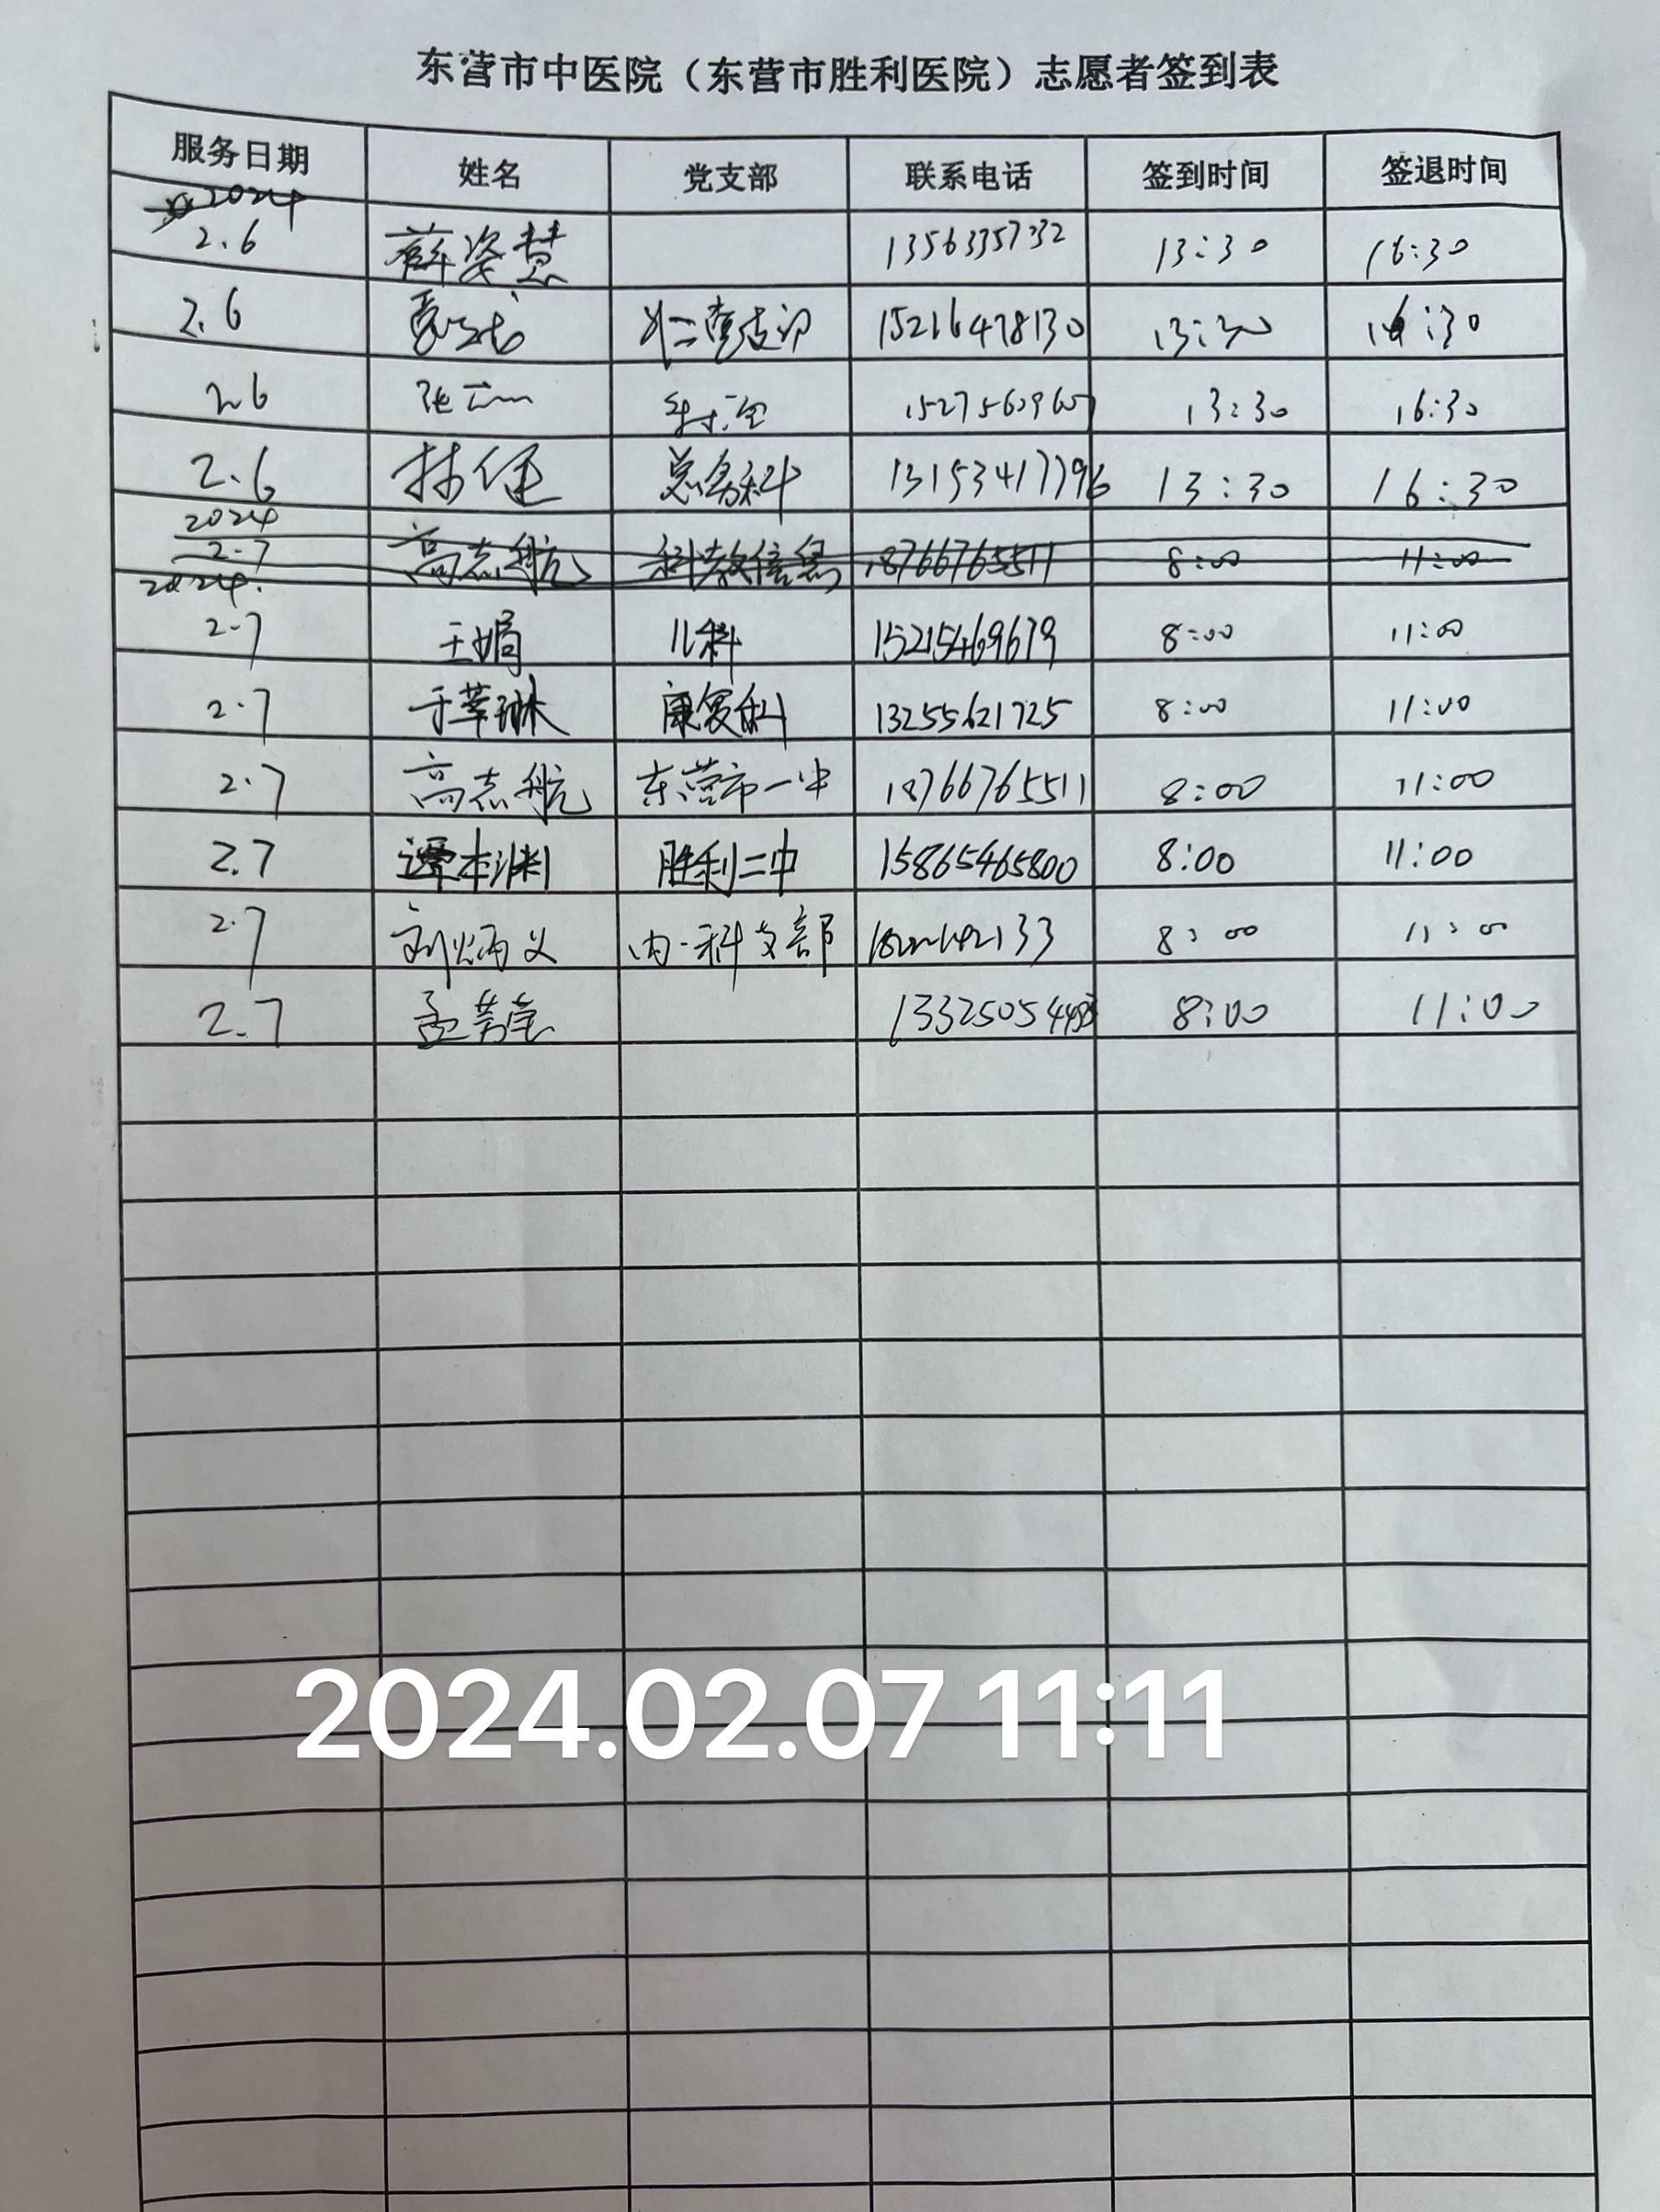 东营市中医院（东营市胜利医院）志愿者签到表
服务日期 姓名 党支部 联系电话 签到时间 签退时间
2024
2.6 薛姿慧 13563357332 13:30 16:30
2.6 15216478130 13:30 16:30
2.6 张 13:30 16:30
2.6 林健 总务科 13153417796 13:30 16:30
2024
2.7 高志航 科教信息 18766765511 8:00 11:00
2024.
2.7 王娟 儿科 15215469679 8:00 11:00
2.7 于莘琳 康复科 13255621725 8:00 11:00
2.7 高志航 东营市一中 18766765511 8:00 11:00
2.7 谭本渊 胜利二中 15865465800 8:00 11:00
2.7 刘炳义 内一科支部 8:00 11:00
2.7 孟 8:00 11:00
2024.02.07 11:11